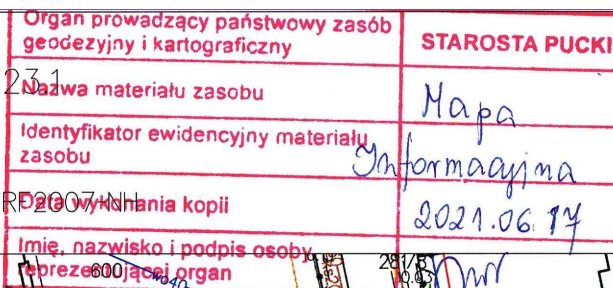 Organ prowadzący państwowy zasób
geodezyjny i kartograficzny
STAROSTA PUCKI
23.1
Nazwa materiału zasobu
Mapa
Identyfikator ewidencyjny materiału
zasobu
Informacyjna
RF2007-NH
Data wykonania kopii
2021.06.17
Imię, nazwisko i podpis osoby
reprezentującej organ
600
cwo40
281/5